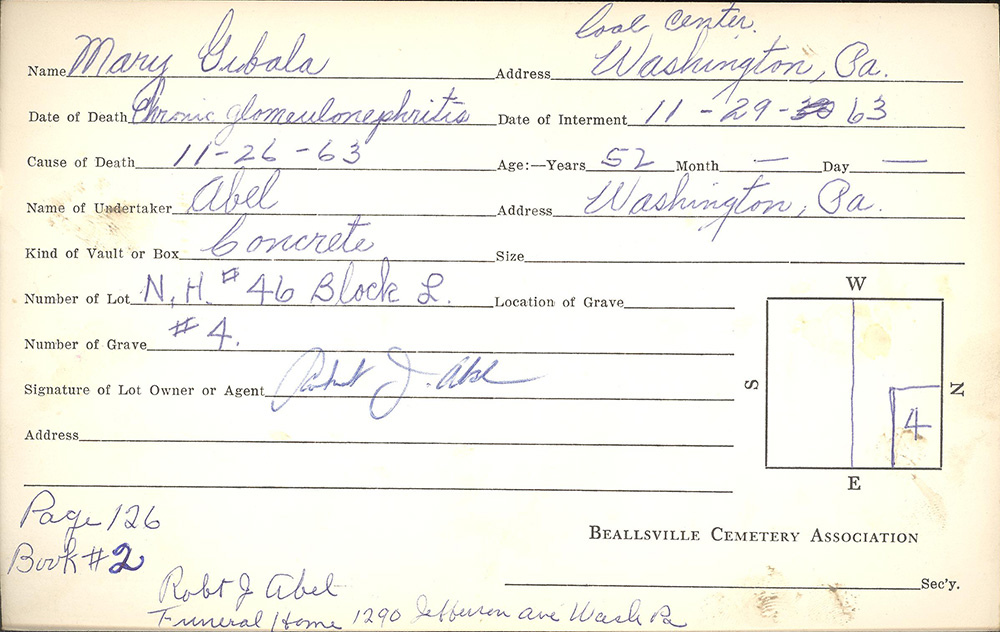 Coal Center.
Name Mary Gubala Address Washington, Pa.
Date of Death Chronic glomeulonephritis Date of Interment 11-29-63
Cause of Death 11-26-63 Age:—Years 52 Month — Day —
Name of Undertaker Abel Address Washington, Pa.
Kind of Vault or Box Concrete Size
Number of Lot N. H. #46 Block L. Location of Grave
Number of Grave #4.
Signature of Lot Owner or Agent Robt J. Abel
Address
W
S
N
4
E
Page 126
Book #2
BEALLSVILLE CEMETERY ASSOCIATION
Sec'y.
Robt J Abel
Funeral Home 1290 Jefferson ave Wash Pa